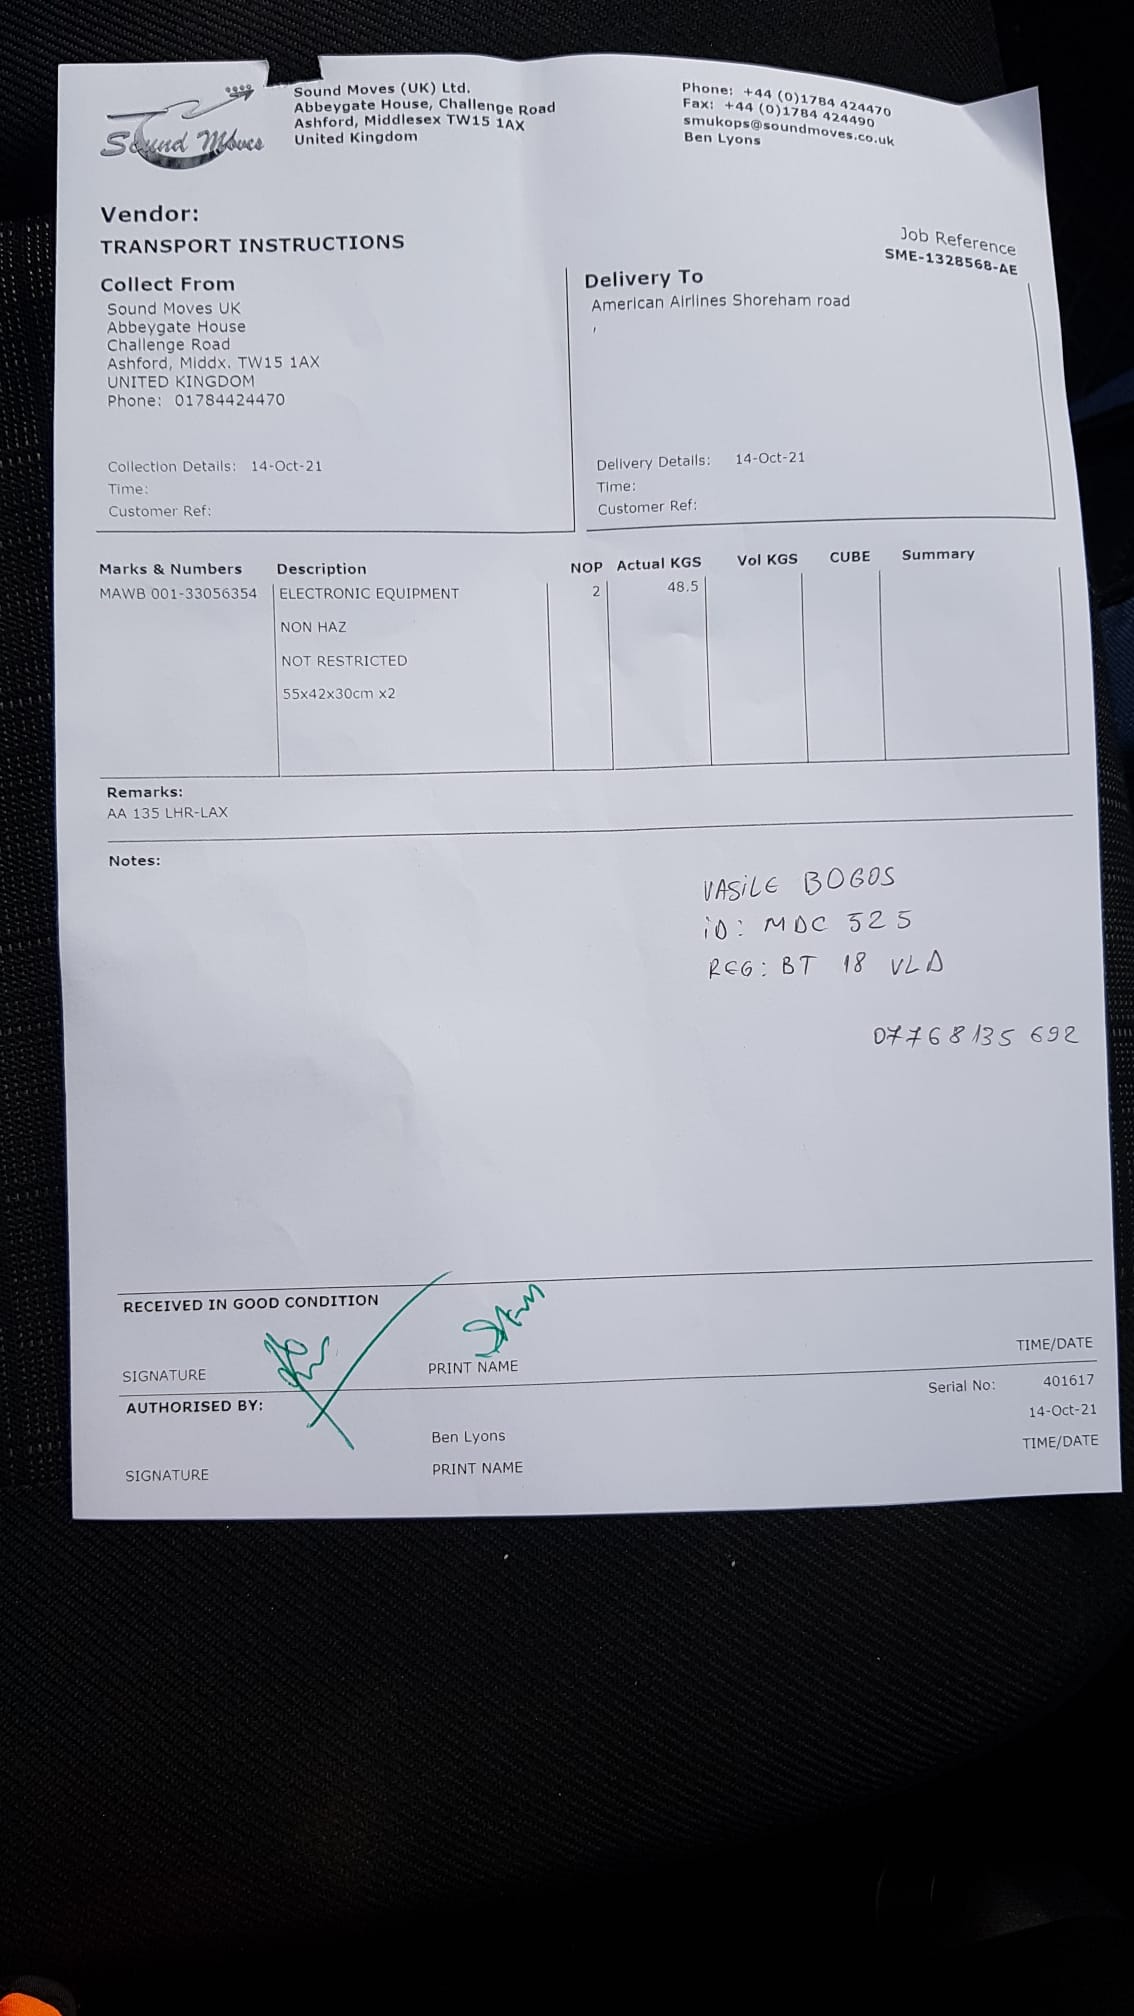 Sound Moves
Sound Moves (UK) Ltd.
Abbeygate House, Challenge Road
Ashford, Middlesex TW15 1AX
United Kingdom
Phone: +44 (0)1784 424470
Fax: +44 (0)1784 424490
smukops@soundmoves.co.uk
Ben Lyons
Vendor:
TRANSPORT INSTRUCTIONS
Job Reference
SME-1328568-AE
Collect From
Sound Moves UK
Abbeygate House
Challenge Road
Ashford, Middx. TW15 1AX
UNITED KINGDOM
Phone: 01784424470
Collection Details: 14-Oct-21
Time:
Customer Ref:
Delivery To
American Airlines Shoreham road
,
Delivery Details: 14-Oct-21
Time:
Customer Ref:
Marks & Numbers Description NOP Actual KGS Vol KGS CUBE Summary
MAWB 001-33056354 ELECTRONIC EQUIPMENT 2 48.5
NON HAZ
NOT RESTRICTED
55x42x30cm x2
Remarks:
AA 135 LHR-LAX
Notes:
VASILE BOGOS
iD: MDC 525
REG: BT 18 VLD
07768135 692
RECEIVED IN GOOD CONDITION
SIGNATURE PRINT NAME TIME/DATE
AUTHORISED BY: Serial No: 401617
14-Oct-21
Ben Lyons
SIGNATURE PRINT NAME TIME/DATE